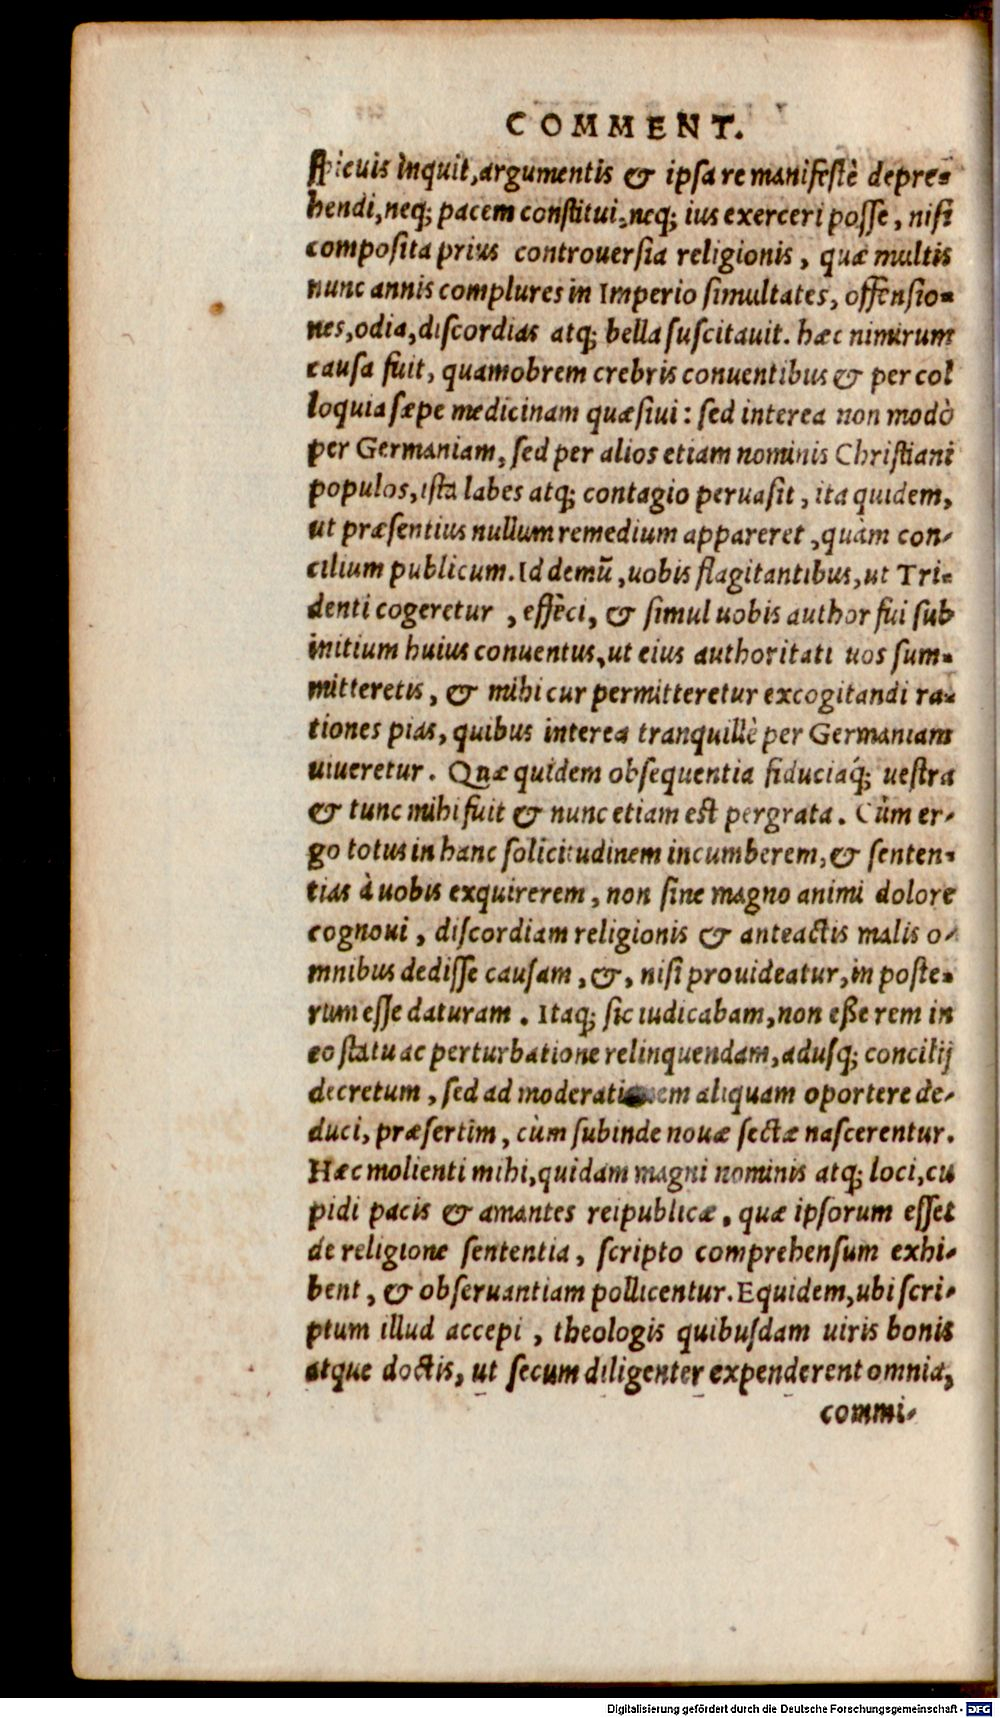 COMMENT.
spicuis inquit, argumentis & ipsa re manifestè depre-
hendi, neq; pacem constitui, neq; ius exerceri posse, nisi
composita prius controuersia religionis, quæ multis
nunc annis complures in Imperio simultates, offensio-
nes, odia, discordias atq; bella suscitauit. hæc nimirum
causa fuit, quamobrem crebris conuentibus & per col
loquia sæpe medicinam quæsiui: sed interea non modò
per Germaniam, sed per alios etiam nominis Christiani
populos, ista labes atq; contagio peruasit, ita quidem,
ut præsentius nullum remedium appareret, quàm con-
cilium publicum. Id demū, uobis flagitantibus, ut Tri-
denti cogeretur, effeci, & simul uobis author fui sub
initium huius conuentus, ut eius authoritati uos sum-
mitteretis, & mihi cur permitteretur excogitandi ra-
tiones pias, quibus interea tranquillè per Germaniam
uiueretur. Quæ quidem obsequentia fiduciaq́; uestra
& tunc mihi fuit & nunc etiam est pergrata. Cùm er-
go totus in hanc solicitudinem incumberem, & senten-
tias à uobis exquirerem, non sine magno animi dolore
cognoui, discordiam religionis & anteactis malis o-
mnibus dedisse causam, &, nisi prouideatur, in poste-
rum esse daturam. Itaq; sic iudicabam, non eße rem in
eo statu ac perturbatione relinquendam, adusq; concilij
decretum, sed ad moderationem aliquam oportere de-
duci, præsertim, cùm subinde nouæ sectæ nascerentur.
Hæc molienti mihi, quidam magni nominis atq; loci, cu
pidi pacis & amantes reipublicæ, quæ ipsorum esset
de religione sententia, scripto comprehensum exhi-
bent, & obseruantiam pollicentur. Equidem, ubi scri-
ptum illud accepi, theologis quibusdam uiris bonis
atque doctis, ut secum diligenter expenderent omnia,
commi-
Digitalisierung gefördert durch die Deutsche Forschungsgemeinschaft - DFG